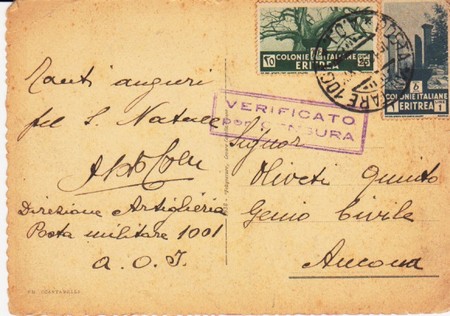 Tanti auguri
pel S. Natale
Direzione Artiglieria
Posta militare 1001
A.O.I.
VERIFICATO
per CENSURA
Signor
Oliveti Quinto
Genio Civile
Ancona
10
COLONIE ITALIANE
ERITREA
COLONIE ITALIANE
ERITREA